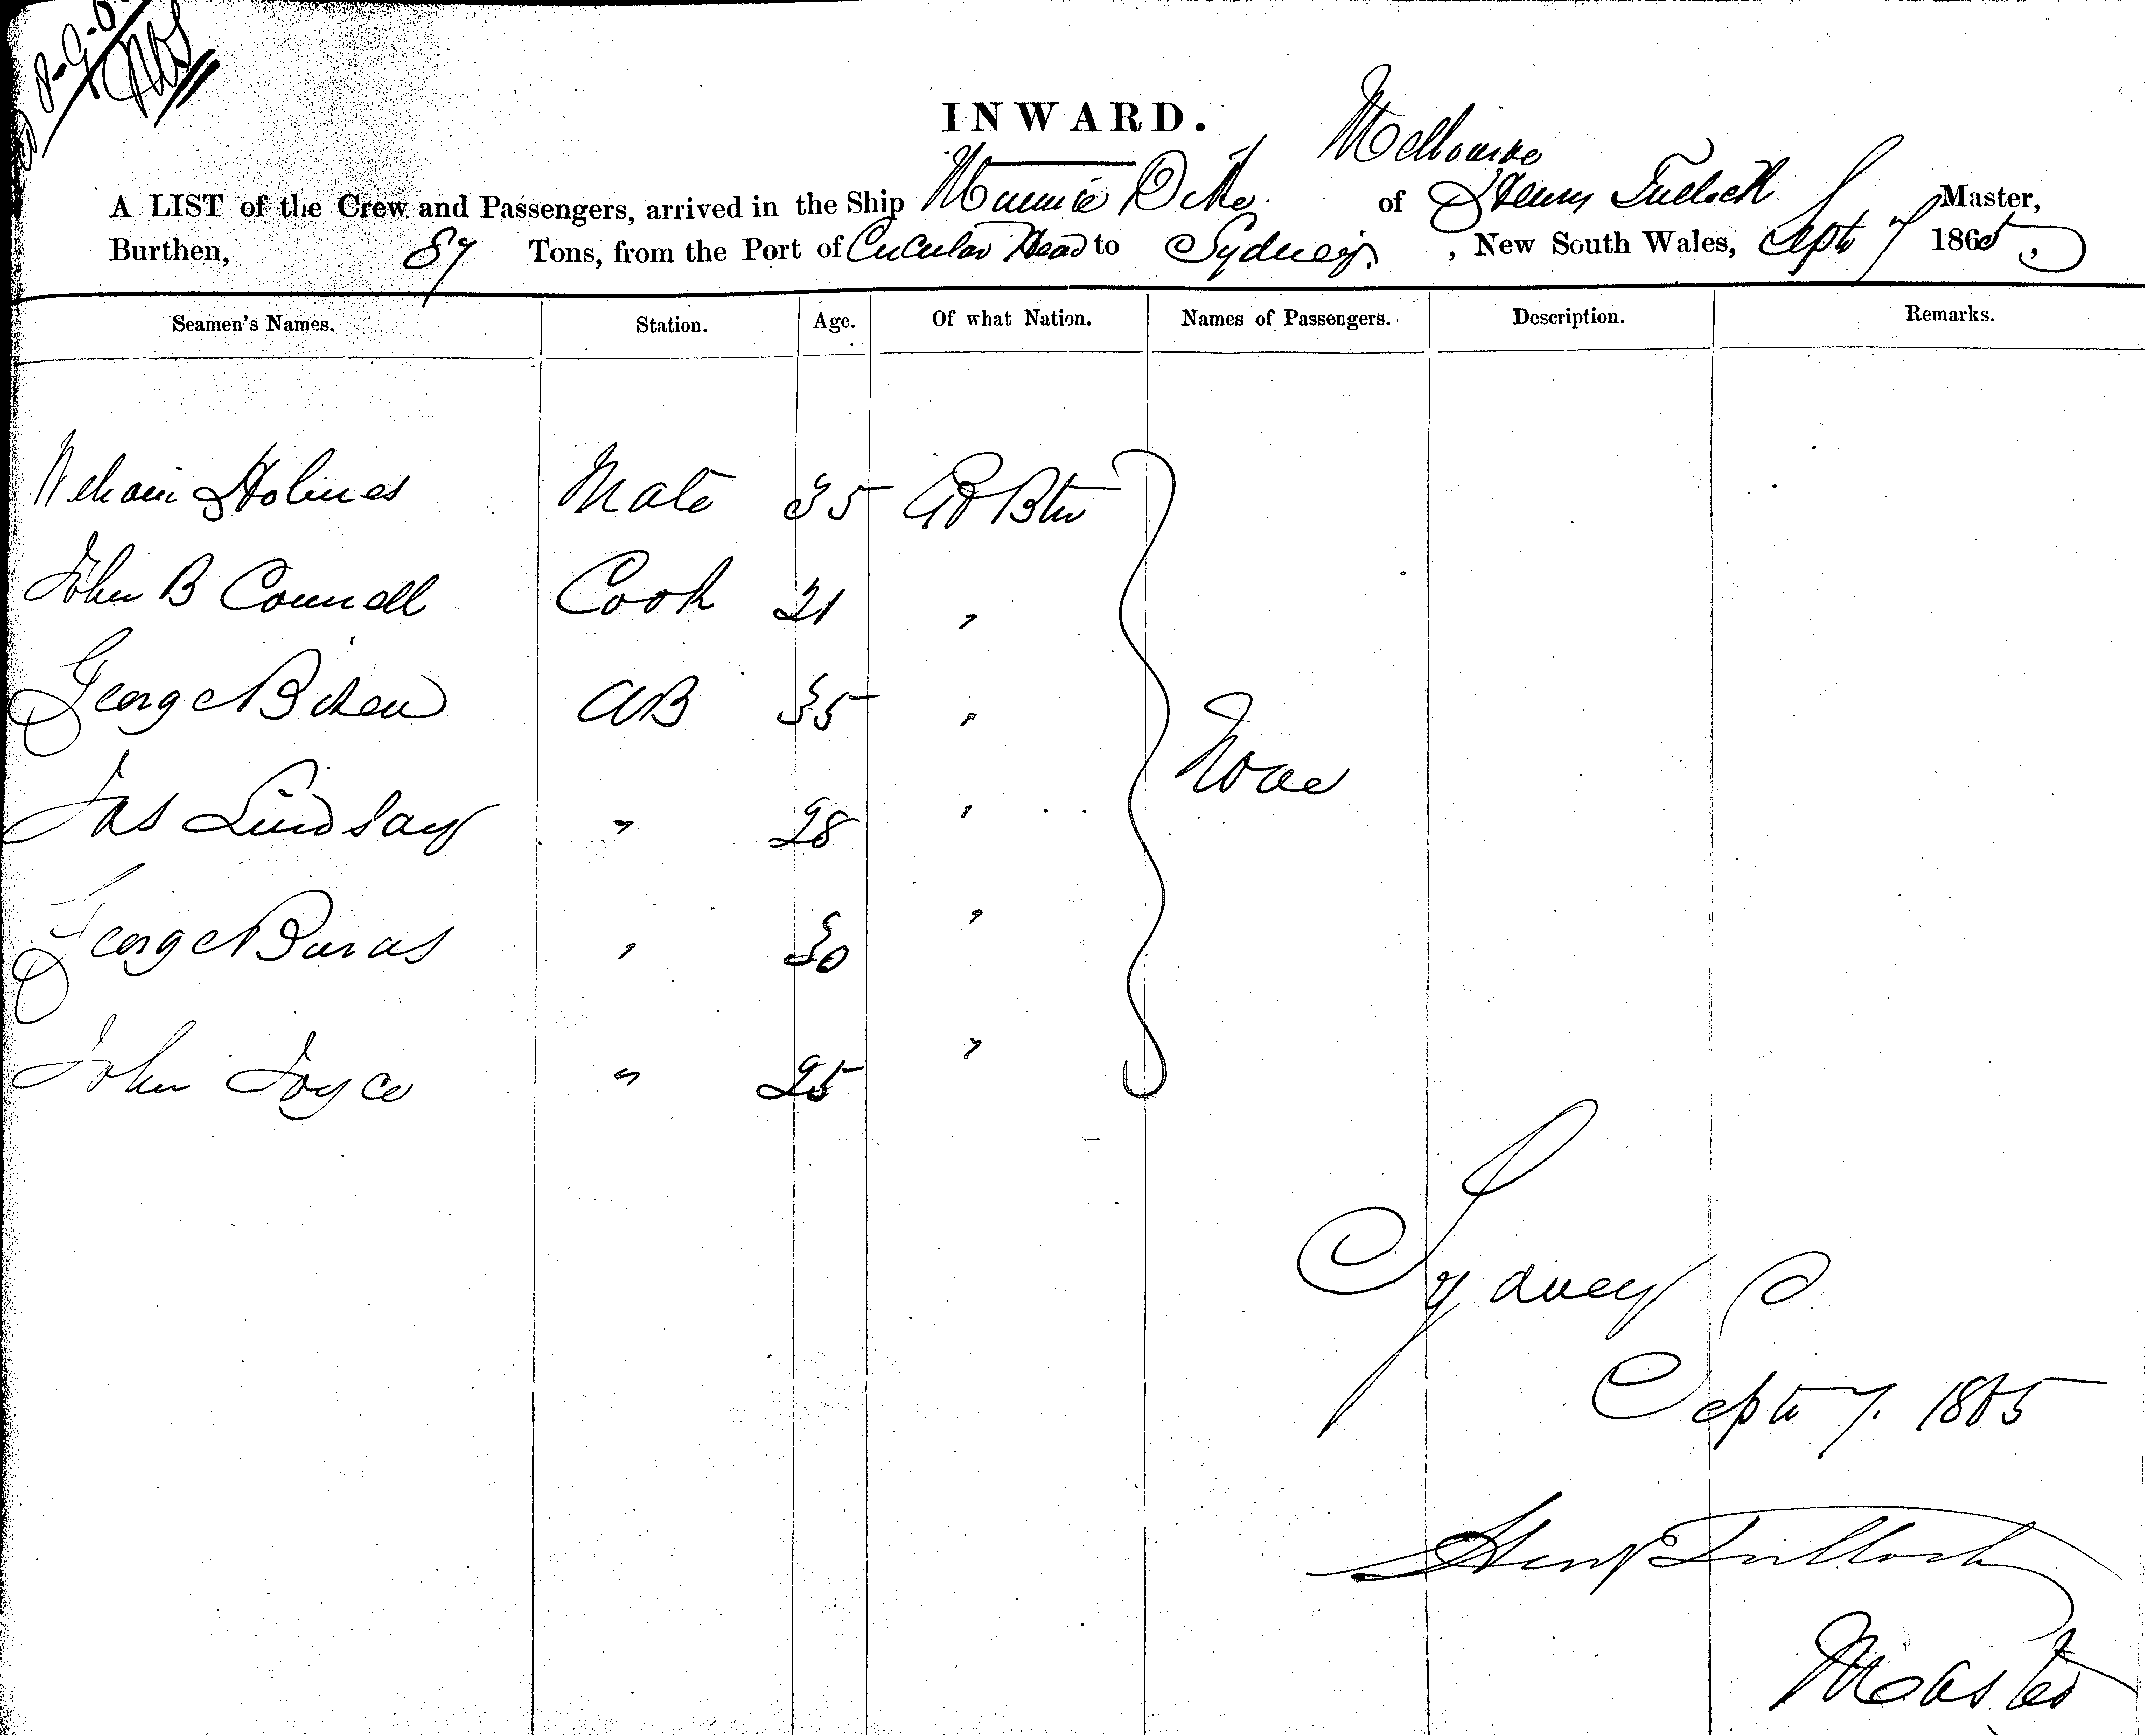 INWARD.
Melbourne
A LIST of the Crew and Passengers, arrived in the Ship Minnie Dike of Henry Tulloch Master,
Burthen, 87 Tons, from the Port of Circular Head to Sydney , New South Wales, Septr 7 1865
Seamen's Names. Station. Age. Of what Nation. Names of Passengers. Description. Remarks.
William Holmes Mate 35 Gt Btn
John B Connell Cook 21 "
George AB 35 "
None
Jas Lindsay " 28 "
George Burns " 30 "
John Joyce " 25 "
Sydney
Septr 7. 1865
Henry Tulloch
Master